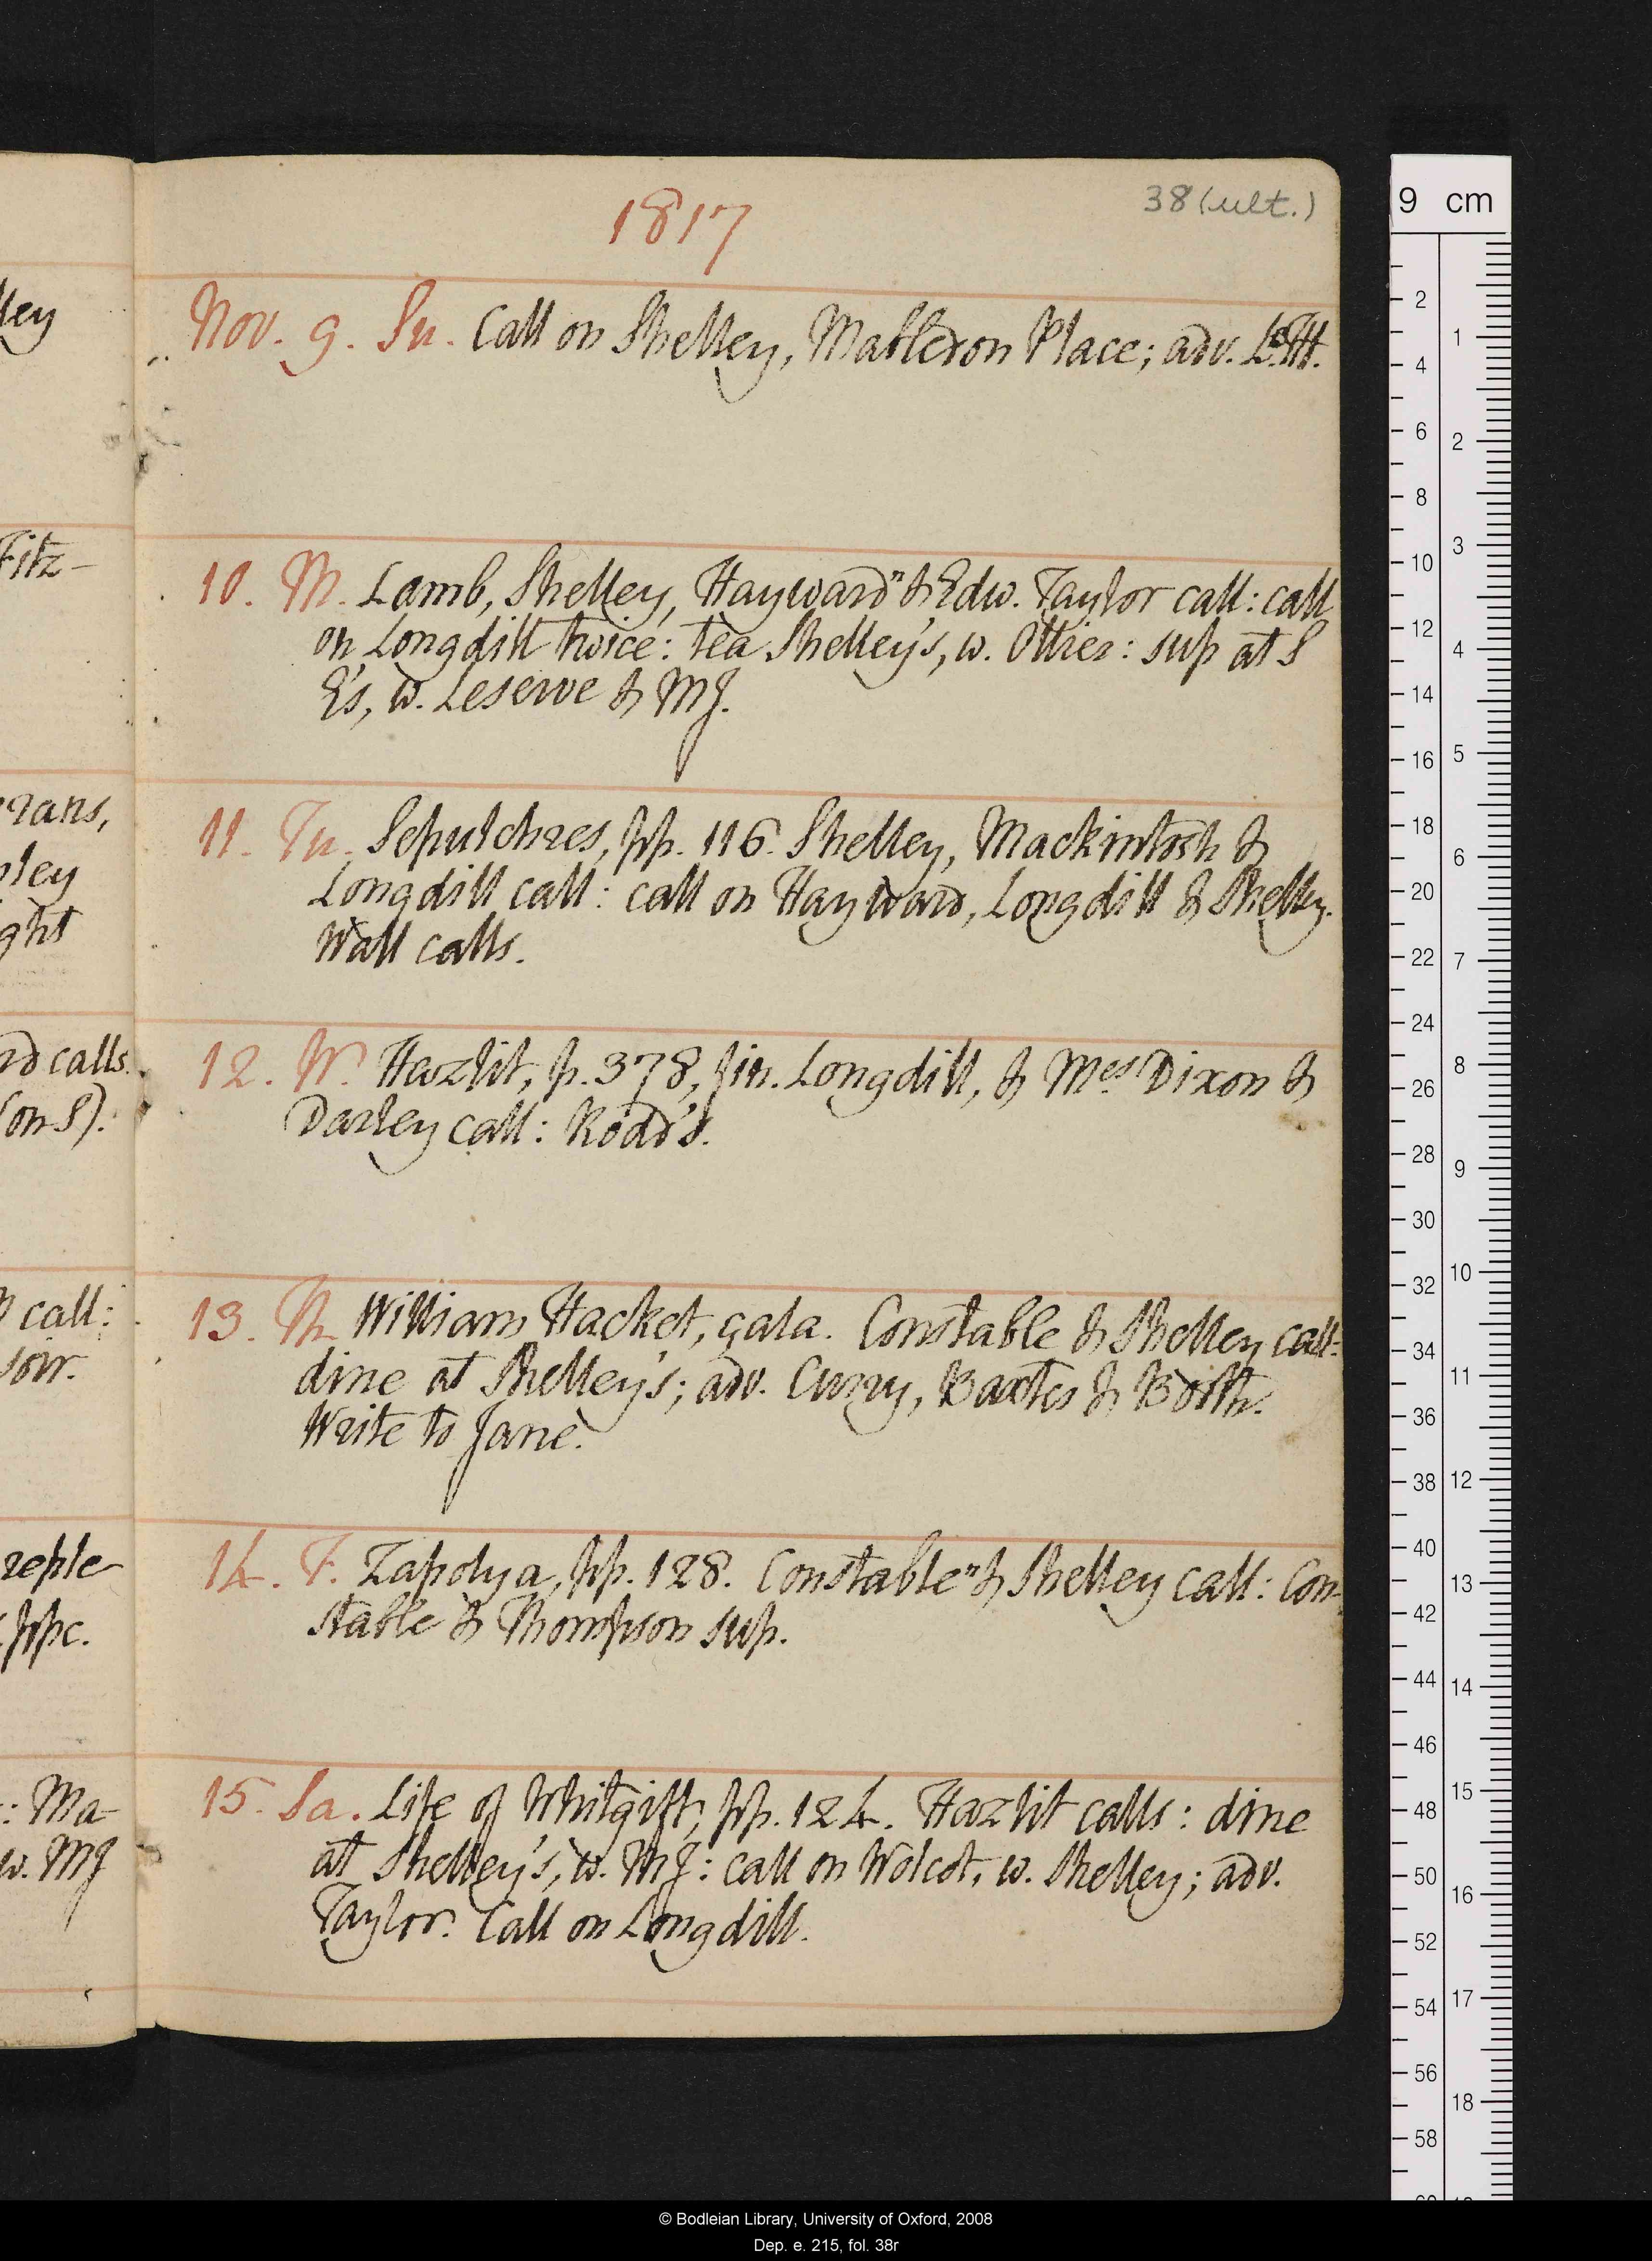 1817
38 (ult.)
Nov. 9. Su. Call on Shelley, Mabledon Place; adv. L. H.
10. M. Lamb, Shelley, Hayward n & Edw. Taylor call: call
on Longdill twice: tea Shelley's, w. Ollier: sup at S
E's, w. Leserve & MJ.
11. Tu. Sepulchres, pp. 116. Shelley, Mackintosh &
Longdill call: call on Hayward, Longdill & Shelley.
Wall calls.
12. W. Hazlit, p. 378, fin. Longdill, & Mes Dixon &
Darley call: Rodd's.
13. Th. William Hacket, çala. Constable & Shelley call:
dine at Shelley's; adv. Curry, Baxter & Booth.
Write to Jane.
14. F. Zapolya, pp. 128. Constable n & Shelley call: Con-
stable & Thompson sup.
15. Sa. Life of Whitgift, pp. 124. Hazlit calls: dine
at Shelley's, w. MJ: call on Wolcot, w. Shelley; adv.
Taylor. Call on Longdill.
lley
Fitz-
rans,
ley
ght
rd calls.
(on S).
call:
soir.
reple-
ppc.
: Ma-
w. MJ
9 cm
2
4
6
8
10
12
14
16
18
20
22
24
26
28
30
32
34
36
38
40
42
44
46
48
50
52
54
56
58
1
2
3
4
5
6
7
8
9
10
11
12
13
14
15
16
17
18
© Bodleian Library, University of Oxford, 2008
Dep. e. 215, fol. 38r